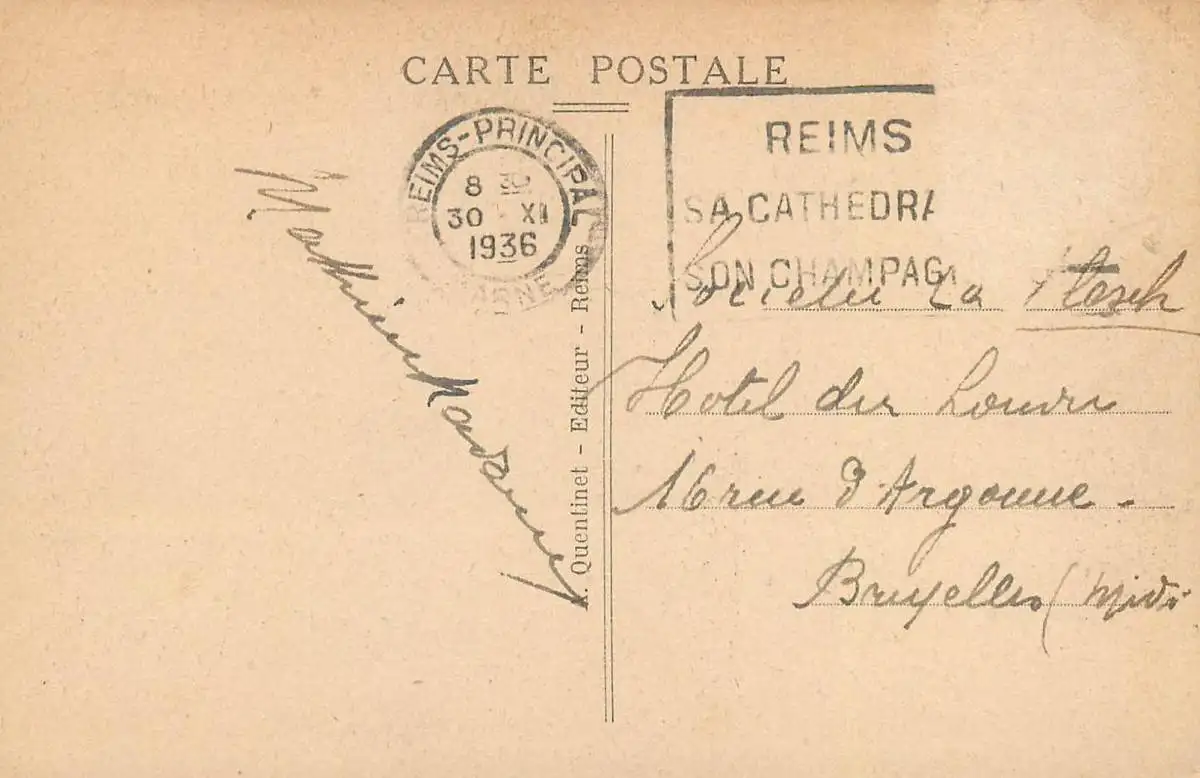 CARTE POSTALE
REIMS-PRINCIPAL
8 30
30 XI
1936
MARNE
REIMS
SA CATHEDRA
SON CHAMPAG
La
Hotel du Louvre
16 rue d'Argonne -
Bruxelles (Midi
Quentinet - Editeur - Reims